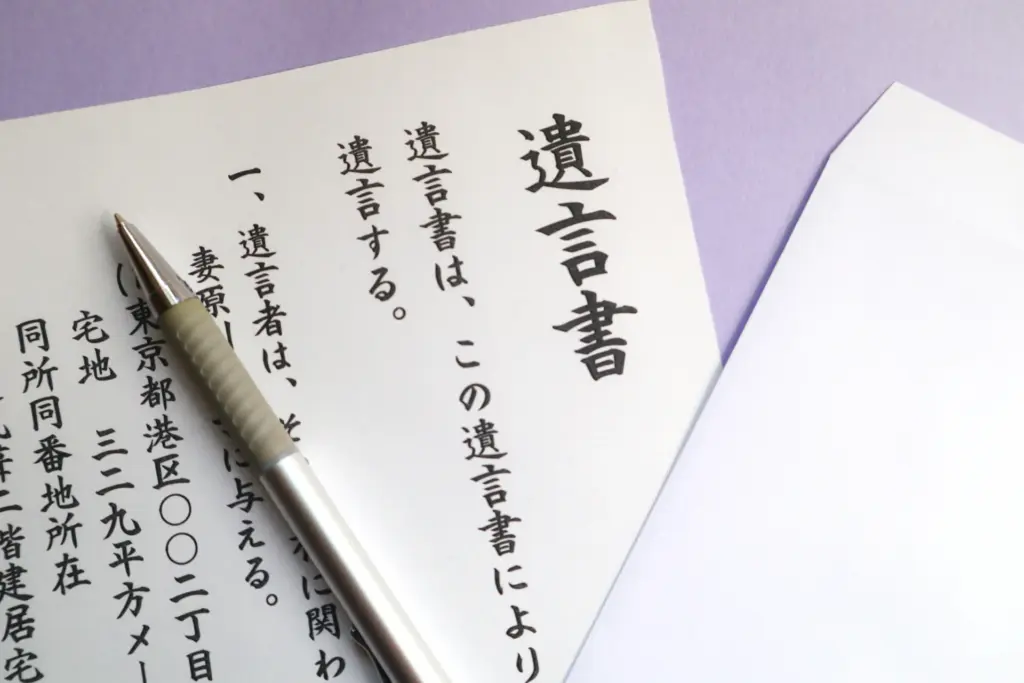 遺言書
遺言書は、この遺言書により
遺言する。
一、遺言者は、
に関わ
妻原
に与える。
(東京都港区〇〇二丁目
宅地 三二九平方メー
同所同番地所在
二階建居宅